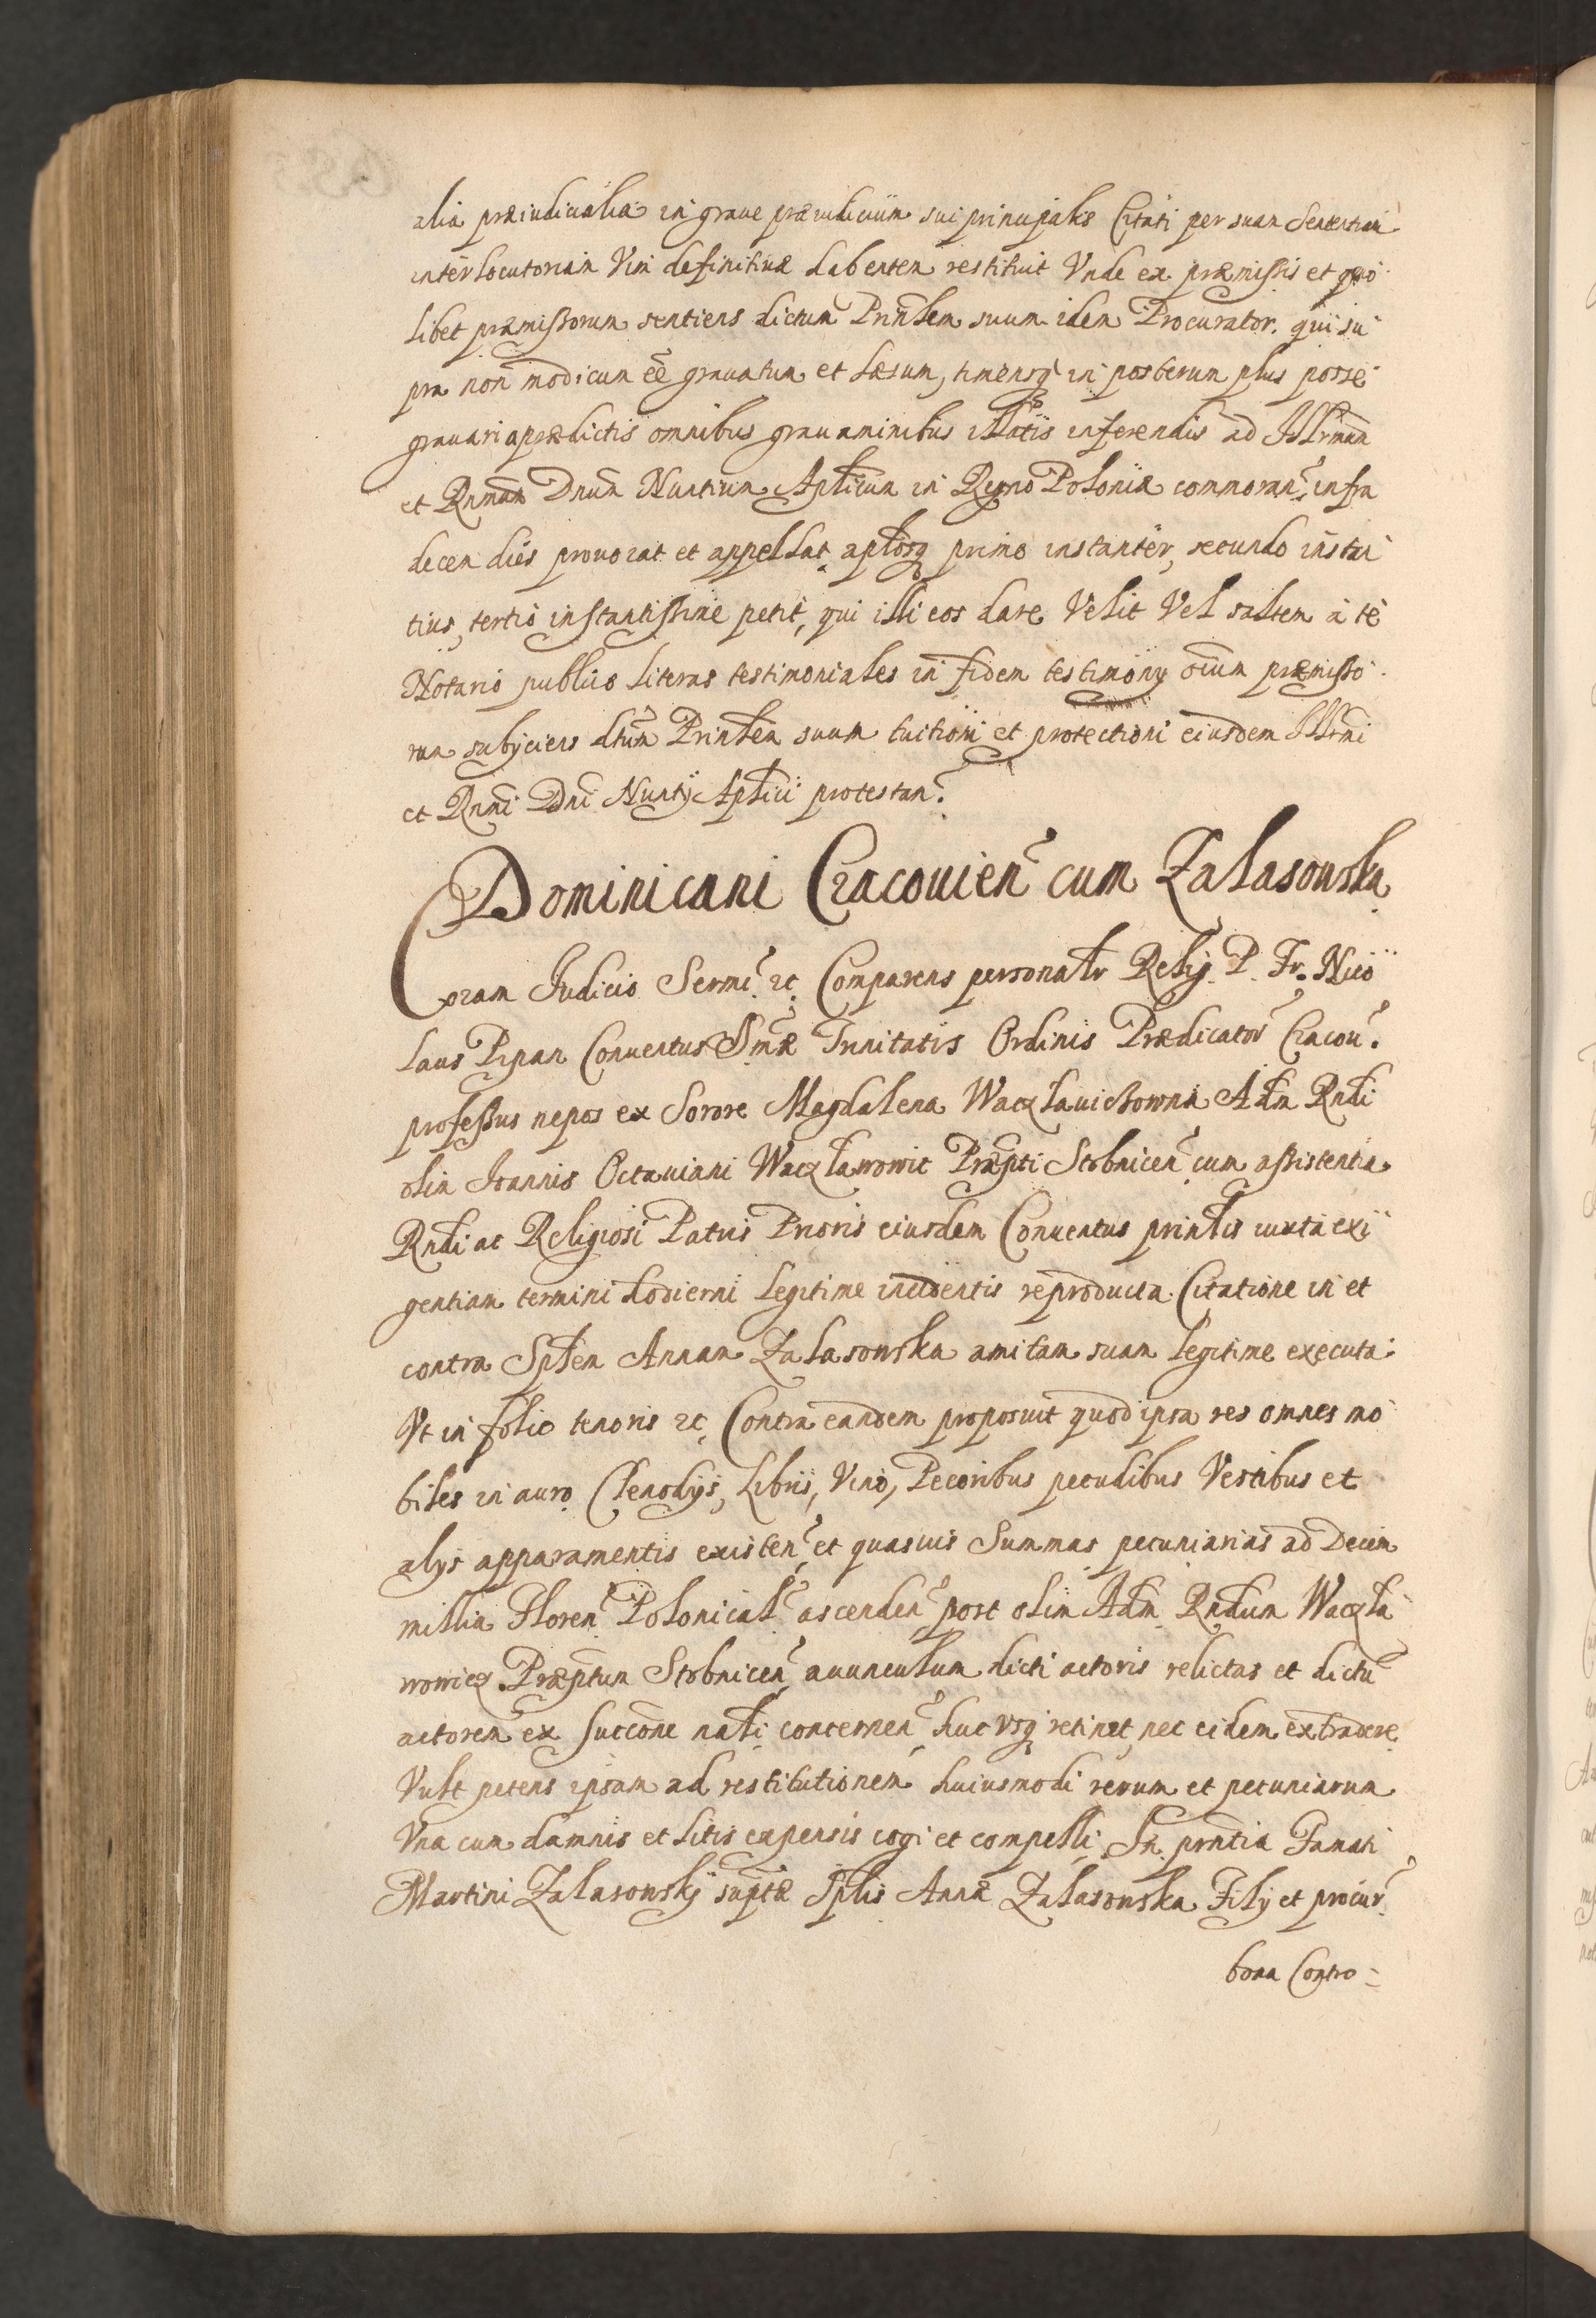 alia præiudicialia in graue præiudicium sui principalis Citati per suam Sententiam
interlocutoriam Vim definitiuæ habentem restituit Vnde ex præmissis et quo
libet præmissorum sentiens dictum Prin̄lem suum idem Procurator qui su
pra non modicum ēē grauatum et læsum, timensq̨ in posterum plus posse
grauari a prædictis omnibus grauaminibus illatis inferendis ad Illr̄mum
et Rn̄mum Dnūm Nuntium Ap̄licum in Regno Poloniæ commoran̄. infra
decem dies prouocat et appellat aptōsq̨ primo instanter, secundo instan
tius, tertio instantissime petit, qui illi eos dare Velit Vel saltem à te
Notario publico literas testimoniales in fidem testimony oīum præmisso
rum subyciens dtūm Prin̄lem suum tuitioni et protectioni eiusdem Illr̄mi
et Rn̄mi Dn̄i Nunty Ap̄lici protestan̄.
Dominicani Cracouien̄ cum Zalasowska
Coram Judicio Sermi: etc. Comparens personal̄r Relig. P. Fr. Nico
laus Pipan Conuentus S̄mæ Trinitatis Ordinis Prædicator̄ Cracou̅.
professus nepos ex Sorore Magdalena Waczlauichowna Ad̄m Rn̄di
olim Joannis Octauiani Waczlawowic Præp̄ti Stobnicen̄ cum assistentia
Rn̄di ac Religiosi Patris Prioris eiusdem Conuentus prin̄lis iuxta exi
gentiam termini hodierni legitime incidentis reproducta Citatione in et
contra Sp̄lem Annam Zalasowska amitam suam legitime executa
Vt in folio tenoris etc. Contra eandem proposuit quod ipsa res omnes mo
biles in auro Clenodys, Libris, Vino, Pecoribus pecudibus Vestibus et
alys apparamentis existen̄, et quasuis Summas pecuniarias ad Decem
millia Floren̄ Polonical̄ ascenden̄ post olim Ad̄m Rn̄dum Waczla
wowicz Præp̄tum Stobnicen̄ auunculum dicti actoris relictas et dictū
actorem ex succōne nal̄i concernen̄ huc vsq̨ retinet, nec eidem extradere
Vult petens ipsam ad restitutionem huiusmodi rerum et pecuniarum
Vna cum damnis et litis expensis cogi et compelli. In prn̄tia Famati
Martini Zalasowsky sup̄tæ Sp̄lis Annæ Zalasowska Fily et procur̄
bona Contro=